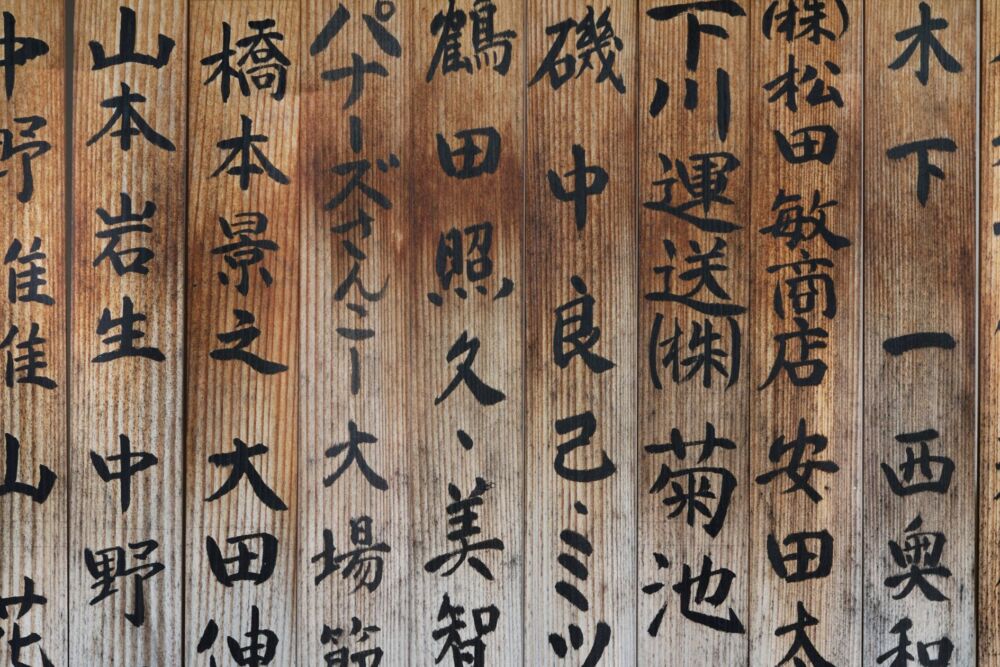 木下 一 西奥和
(株)松田敏商店 安田
下川運送(株) 菊池
磯中良己・ミツ
鶴田照久、美智
パナーズさんこー 大場
橋本景之 大田伸
山本岩生 中野
中野 山 花